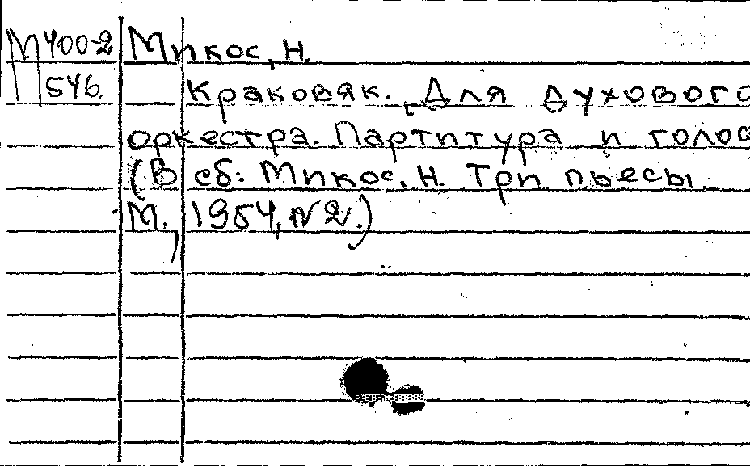 М400-2 Микос, Н.
546. Краковяк. [Для духового
оркестра. Партитура и голос
(В сб: Микос. Н. Три пьесы
М., 1954, №2.)